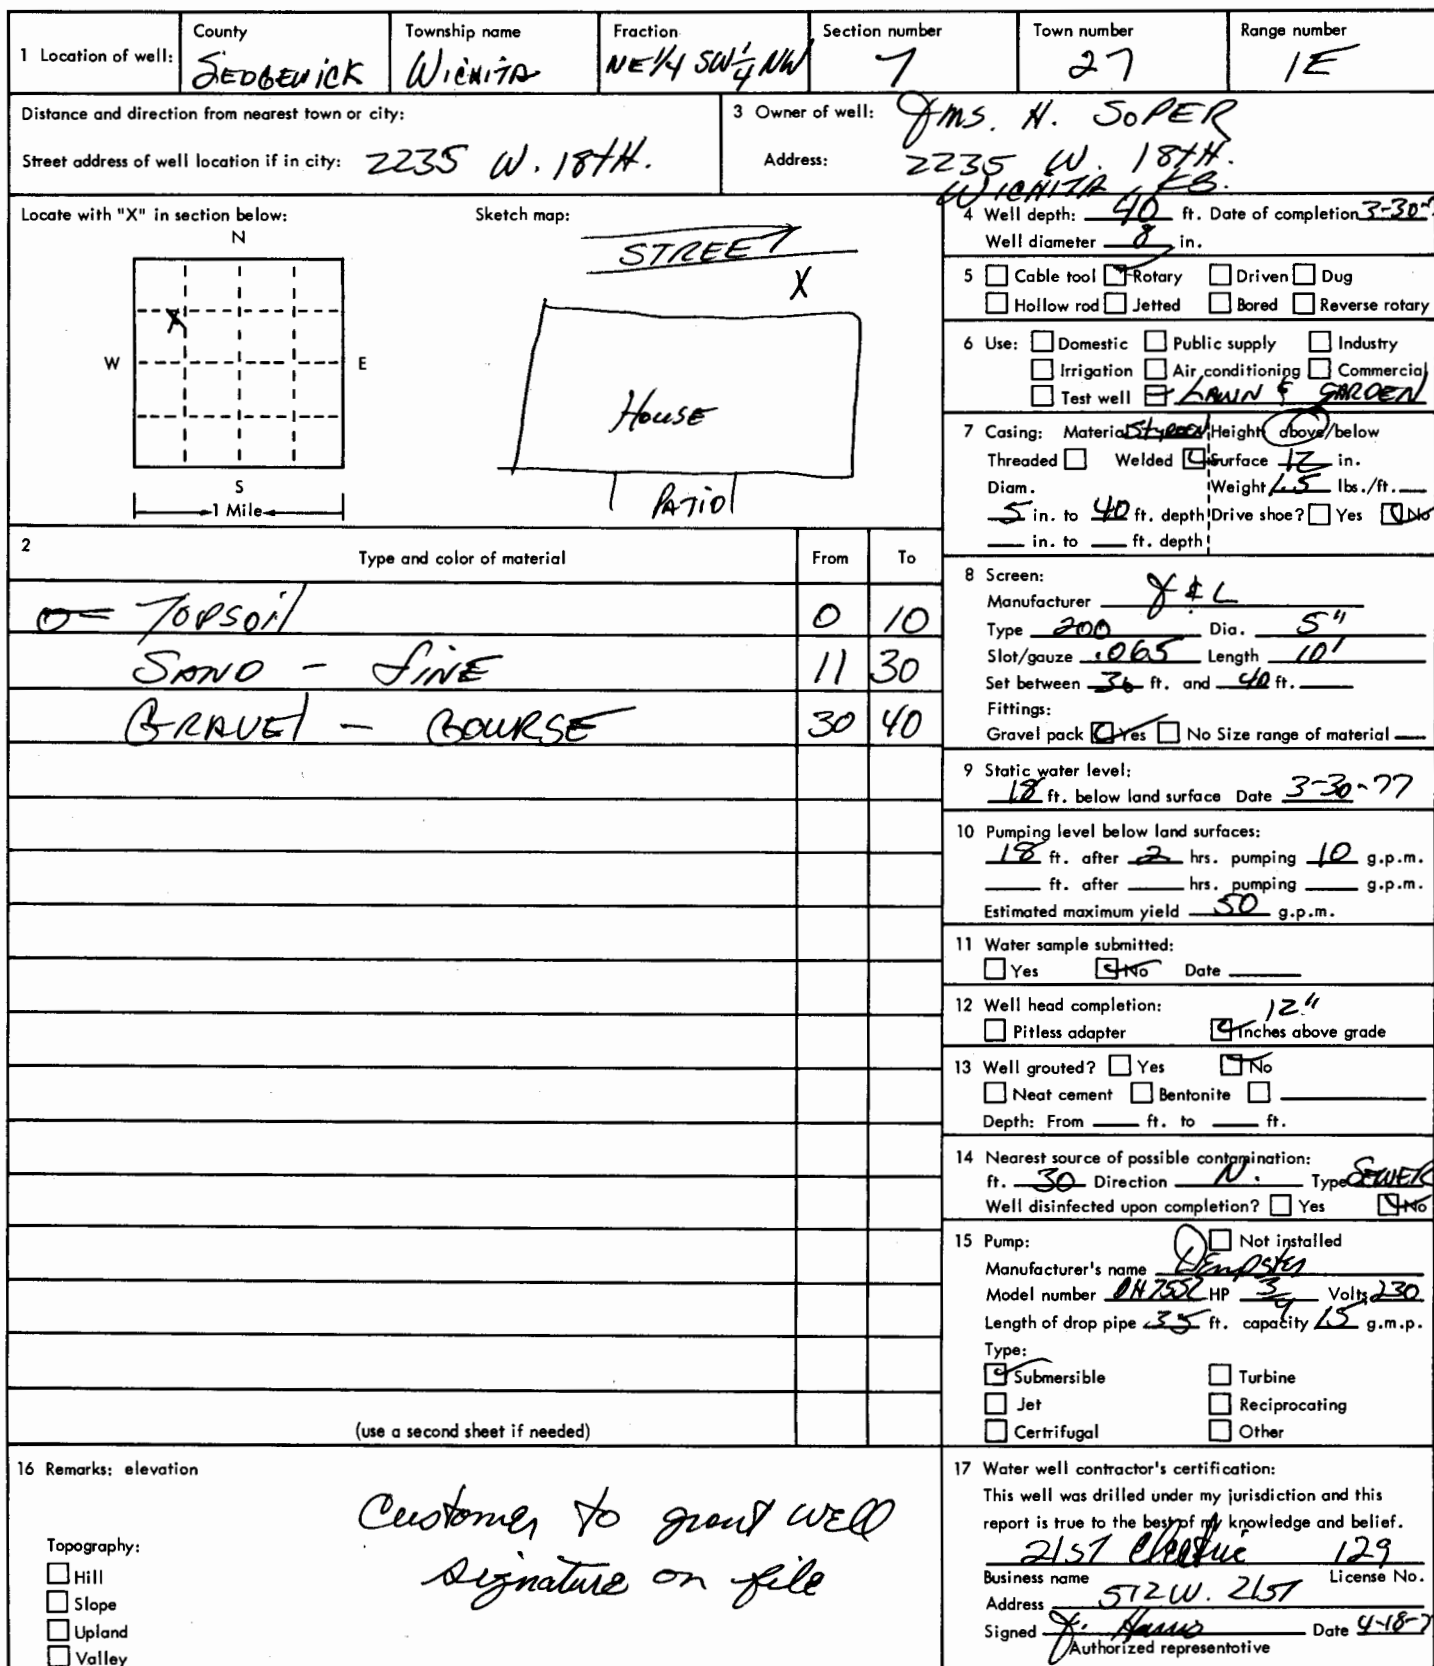 1 Location of well:
County
SEDGEWICK
Township name
WICHITA
Fraction
NE 1/4 SW 1/4 NW
Section number
7
Town number
27
Range number
1E
Distance and direction from nearest town or city:
Street address of well location if in city: 2235 W. 18TH.
3 Owner of well: Jms. H. SOPER
Address: 2235 W. 18TH.
WICHITA, KS.
Locate with "X" in section below:
N
X
W E
S
1 Mile
Sketch map:
STREET
X
HOUSE
PATIO
4 Well depth: 40 ft. Date of completion 3-30-
Well diameter 8 in.
5 Cable tool Rotary Driven Dug
Hollow rod Jetted Bored Reverse rotary
6 Use: Domestic Public supply Industry
Irrigation Air conditioning Commercial
Test well LAWN & GARDEN
7 Casing: Material Height above/below
Threaded Welded Surface 12 in.
Diam. Weight 1.5 lbs./ft.
5 in. to 40 ft. depth Drive shoe? Yes No
in. to ft. depth
2 Type and color of material From To
TOPSOIL 0 10
SAND - FINE 11 30
GRAVEL - COURSE 30 40
(use a second sheet if needed)
8 Screen:
Manufacturer J & L
Type 200 Dia. 5"
Slot/gauze .065 Length 10'
Set between ft. and 40 ft.
Fittings:
Gravel pack Yes No Size range of material
9 Static water level:
18 ft. below land surface Date 3-30-77
10 Pumping level below land surfaces:
18 ft. after 2 hrs. pumping 10 g.p.m.
ft. after hrs. pumping g.p.m.
Estimated maximum yield 50 g.p.m.
11 Water sample submitted:
Yes No Date
12 Well head completion: 12"
Pitless adapter Inches above grade
13 Well grouted? Yes No
Neat cement Bentonite
Depth: From ft. to ft.
14 Nearest source of possible contamination:
ft. 30 Direction N. Type SEWER
Well disinfected upon completion? Yes No
15 Pump: Not installed
Manufacturer's name Dempster
Model number HP 3/4 Volts 230
Length of drop pipe 35 ft. capacity 15 g.m.p.
Type:
Submersible Turbine
Jet Reciprocating
Certrifugal Other
16 Remarks: elevation
Customer to grout well
signature on file
Topography:
Hill
Slope
Upland
Valley
17 Water well contractor's certification:
This well was drilled under my jurisdiction and this
report is true to the best of my knowledge and belief.
21ST Electric 129
Business name License No.
Address 512 W. 21ST
Signed J. Harris Date 4-18-7
Authorized representative